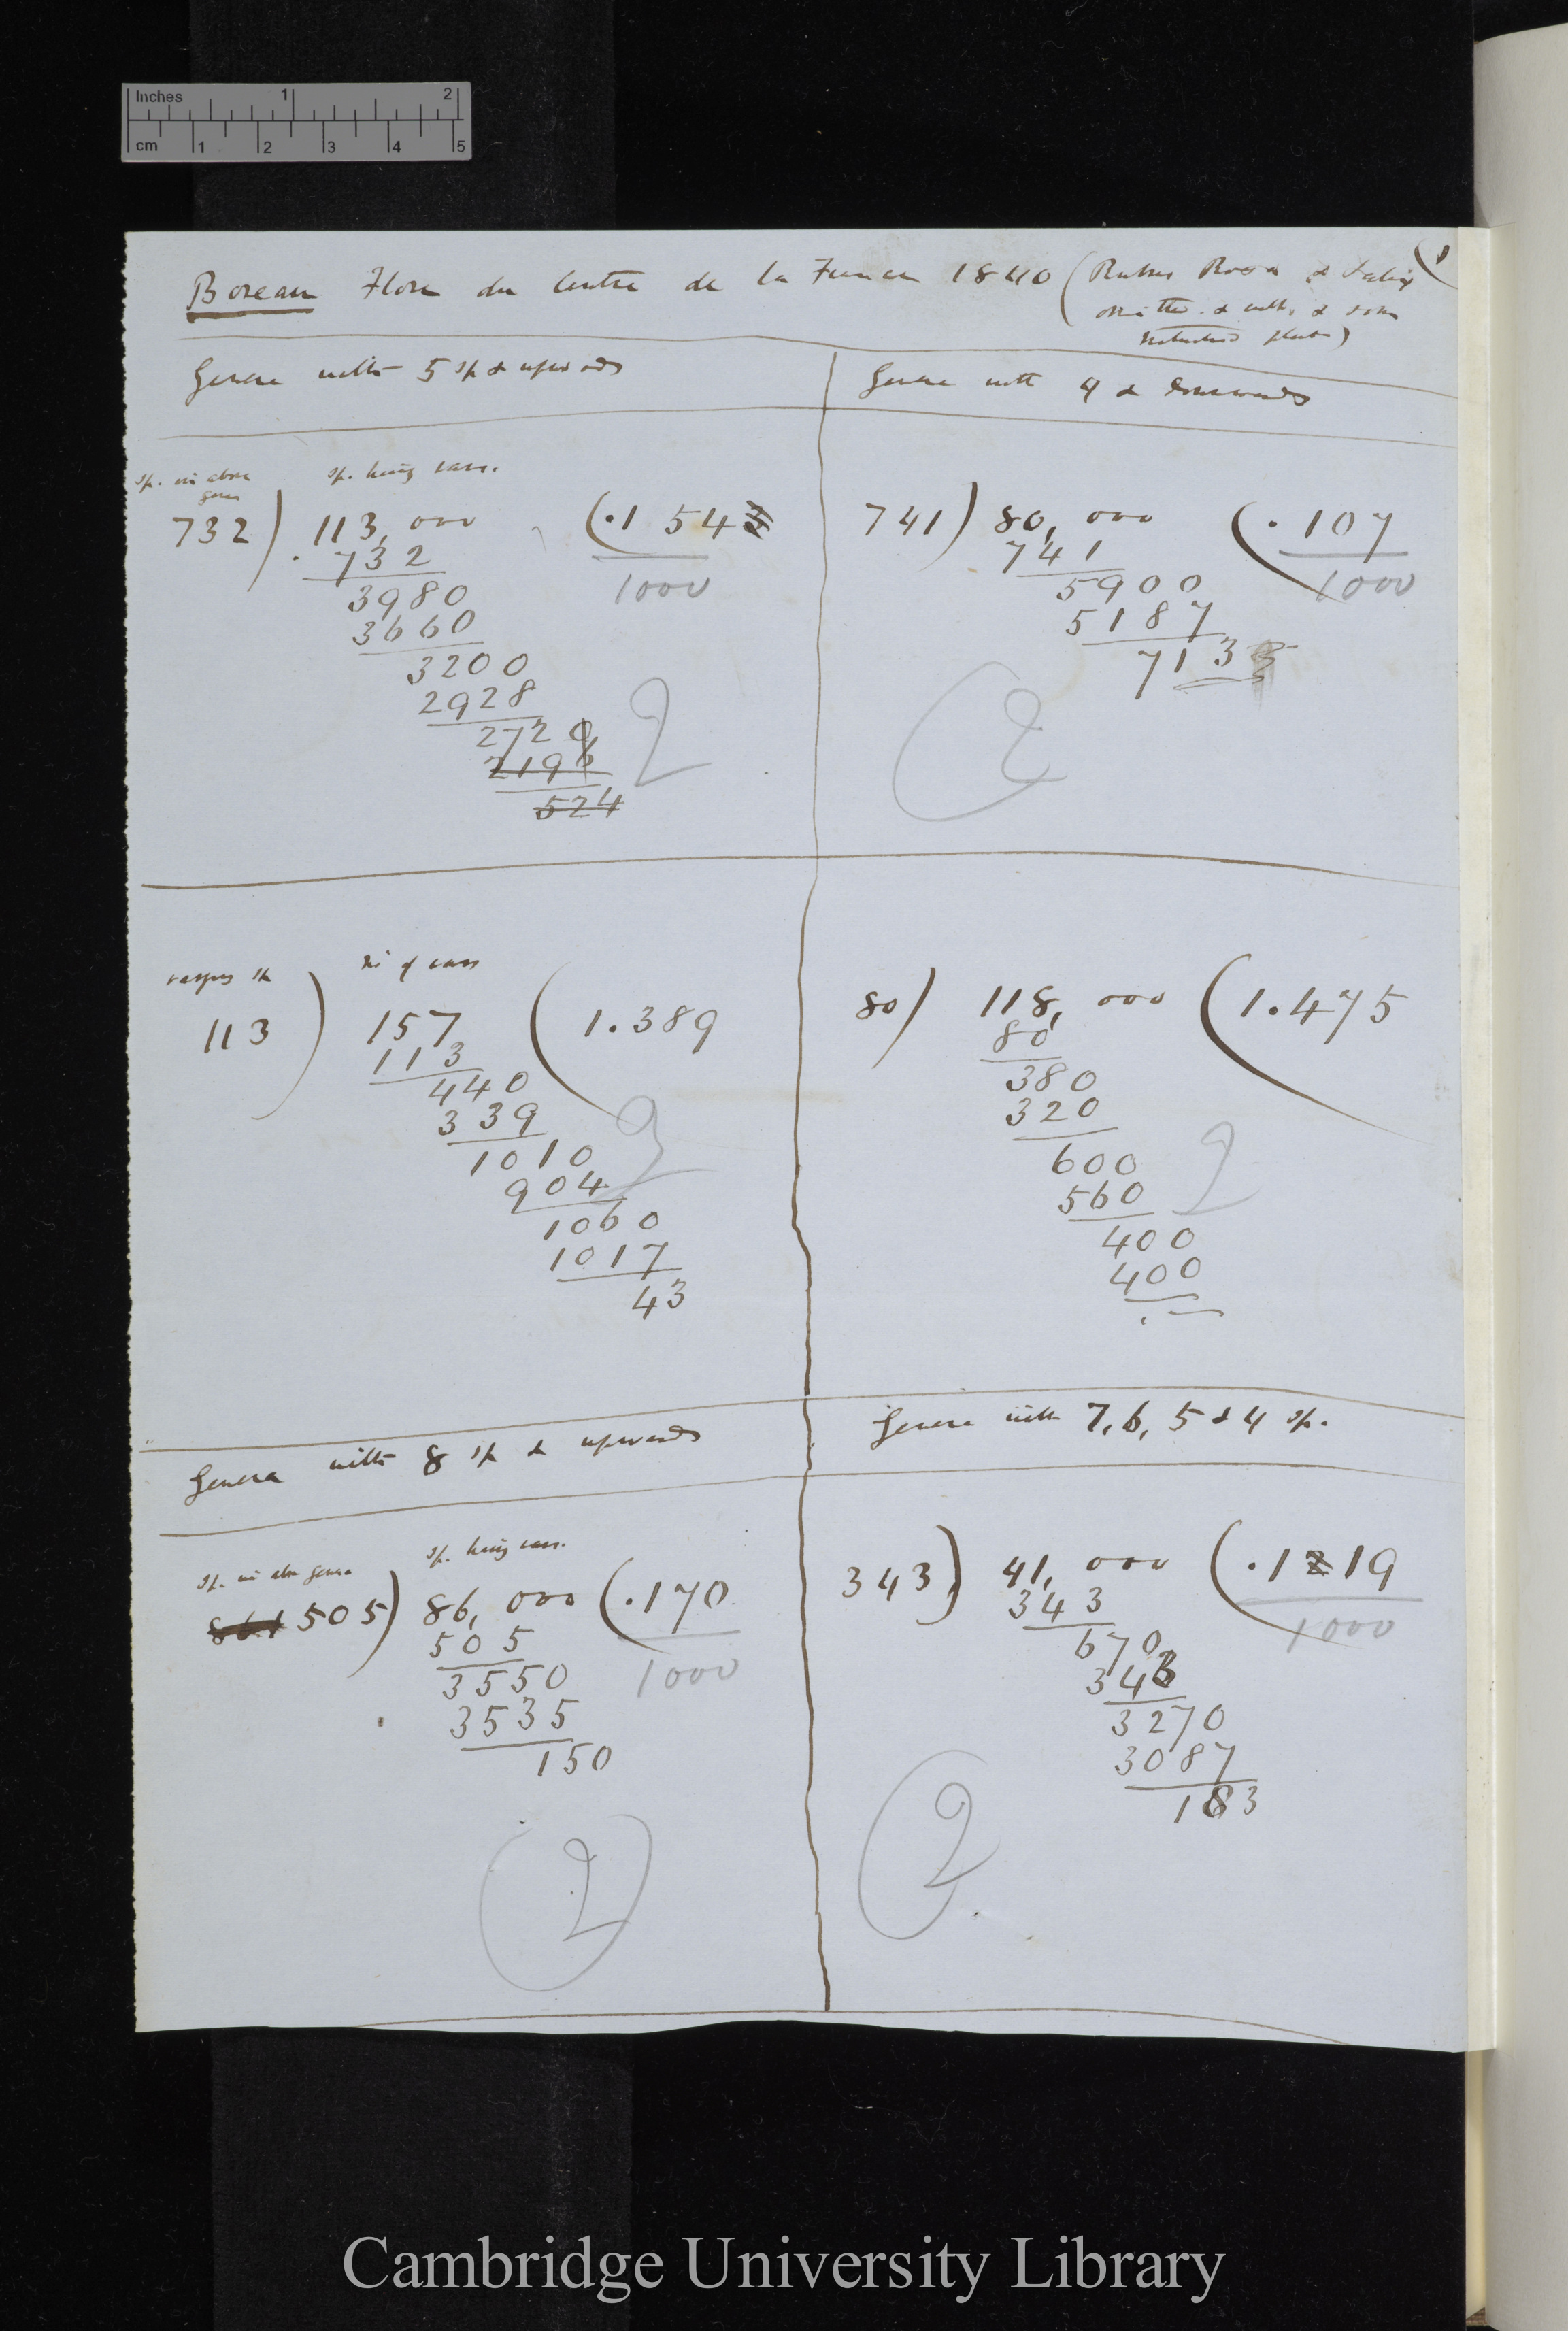 Inches 1 2
cm 1 2 3 4 5
(1
Boreau Flore du Centre de la France 1840 (Rubus Rosa & Salix
omitted & cult. & some
naturalised plants)
Genera with 5 sp & upwards
Genera with 4 & downwards
sp. in above
genera
sp. having vars.
732) 113,000 (.154
732
1000
3980
3660
3200
2928
2720
2196
524
2
741) 80,000 (.107
741
1000
5900
5187
713
2
varying sp
no of vars
113) 157 (1.389
113
440
339
1010
904
1060
1017
43
2
80) 118,000 (1.475
80
380
320
600
560
400
400
2
Genera with 8 sp & upwards
Genera with 7, 6, 5 & 4 sp.
sp. in above genera
sp. having vars.
505) 86,000 (.170
505
1000
3550
3535
150
2
343) 41,000 (.119
343
1000
670
343
3270
3087
183
2
Cambridge University Library